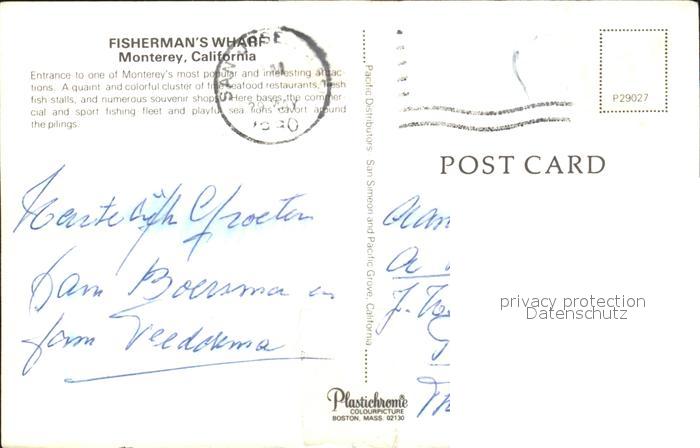 FISHERMAN'S WHARF
Monterey, California
Entrance to one of Monterey's most popular and interesting attrac-
tions. A quaint and colorful cluster of fine seafood restaurants, fresh
fish stalls, and numerous souvenir shops. Here bases the commer-
cial and sport fishing fleet and playful sea lions cavort around
the pilings.
SAN JOSE
Hartelijk Groeten
Fam Boersma en
fam
Pacific Distributors San Simeon and Pacific Grove, California
Plastichrome
COLOURPICTURE
BOSTON, MASS. 02130
P29027
POST CARD
privacy protection
Datenschutz